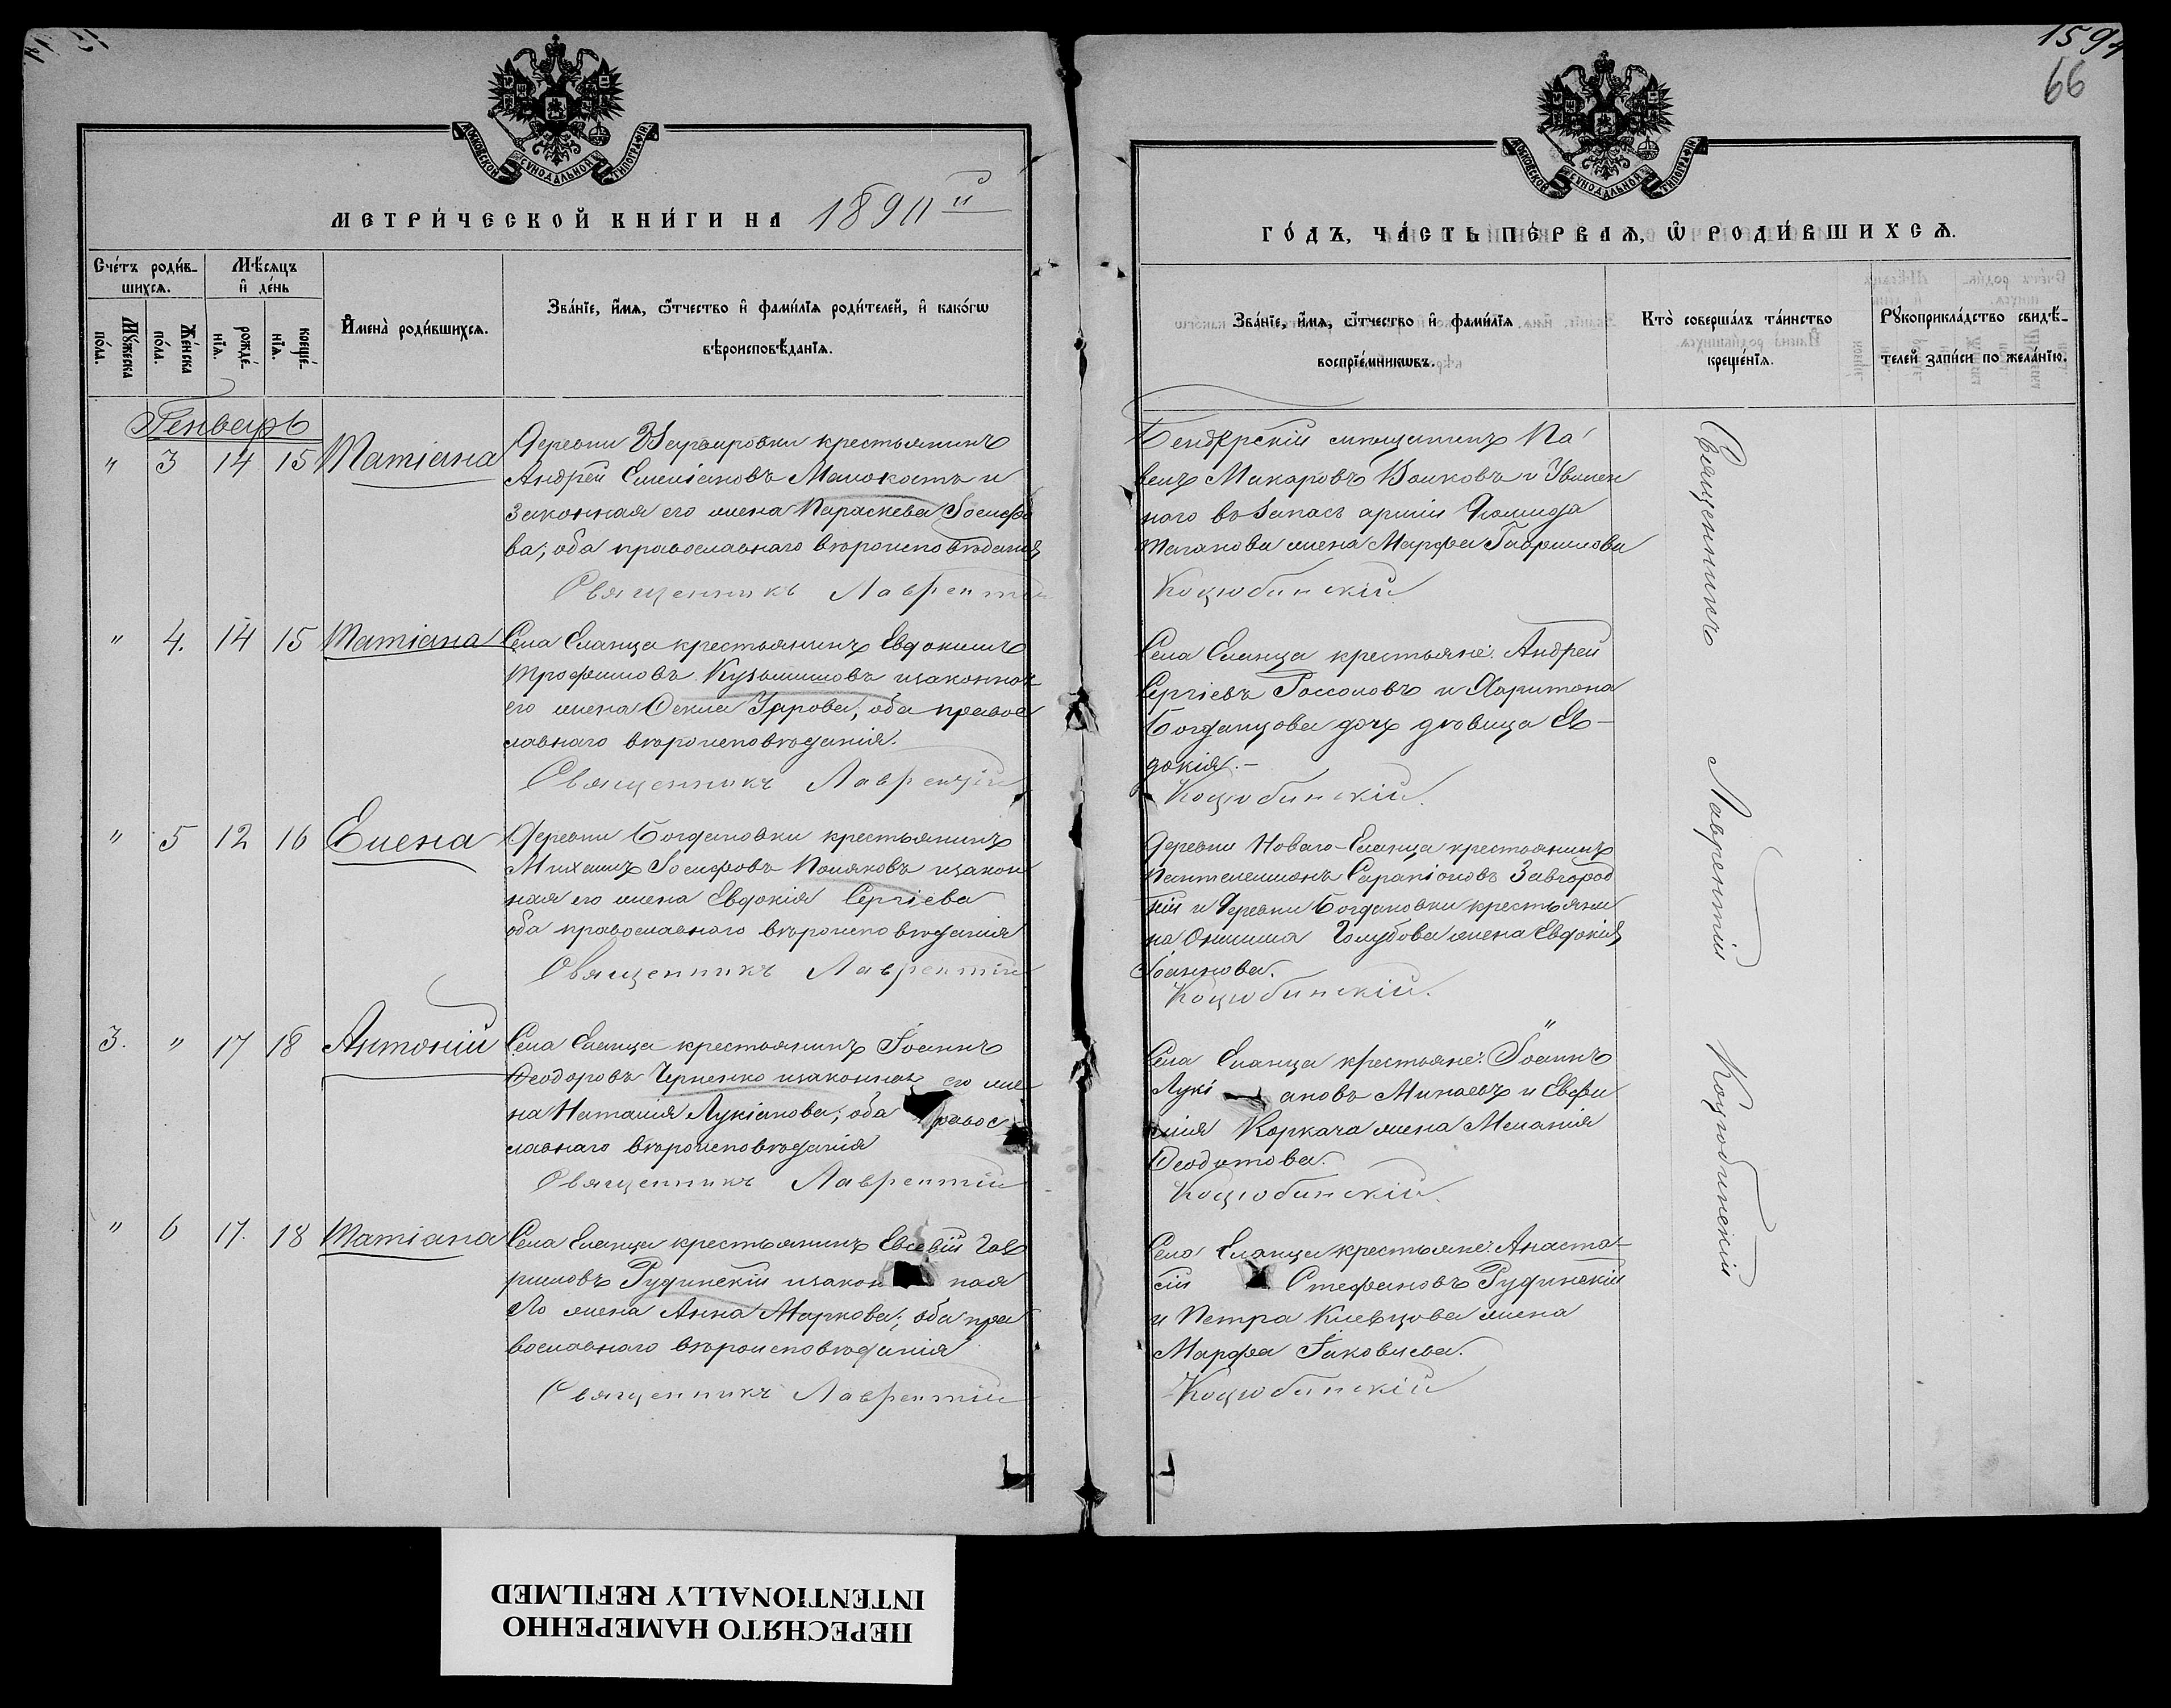 1594
66
МОСКОВСКОЙ СѴНОДАЛЬНОЙ ТИПОГРАФІИ
МОСКОВСКОЙ СѴНОДАЛЬНОЙ ТИПОГРАФІИ
МЕТРИ́ЧЕСКОЙ КНИ́ГИ НА 1890 й
ГО́ДЪ, ЧА́СТЬ ПЕ́РВАѦ, Ѡ РОДИ́ВШИХСѦ.
Сче́тъ роди́в-
шихсѧ.
Мѣ́сѧцъ
и҆ де́нь
Мꙋ́жеска
по́ла.
Же́нска
по́ла.
рожде́-
нїѧ.
креще́-
нїѧ.
И҆мена̀ роди́вшихсѧ.
Зва́нїе, и҆́мѧ, ѻ҆́тчество и҆ фами́лїѧ роди́телей, и҆ како́гѡ
вѣроисповѣ́данїѧ.
Зва́нїе, и҆́мѧ, ѻ҆́тчество и҆ фами́лїѧ
воспрїе́мникѡвъ.
Кто̀ соверша́лъ та́инство
креще́нїѧ.
Рꙋкоприкла́дство свидѣ́-
телей за́писи по жела́нїю.
Генварь
" 3 14 15 Татіана
Деревни крестьянинъ
Андрей Емеліановъ Малокостъ и
законная его жена Параскева Іосифо
ва; оба православнаго вѣроисповѣданія
Священникъ Лаврентій
Бендерскій мещанинъ Па
велъ Макаровъ Волковъ и Уволен
наго въ запасъ арміи
жена Марфа Гаврилова
Коцюбинскій
" 4. 14 15 Татіана
Села Еланца крестьянинъ Евдокимъ
Трофимовъ Кузьминовъ и законная
его жена Ѳекла Уарова; оба правос
лавнаго вѣроисповѣданія.
Священникъ Лаврентій
Села Еланца крестьяне: Андрей
Сергіевъ Россоловъ и Харитона
Богданцова дочь дѣвица Ев-
докія.-
Коцюбинскій.
" 5 12 16 Елена
Деревни Богдановки крестьянинъ
Михаилъ Іосифовъ Поляковъ и закон
ная его жена Евдокія Сергіева
оба православнаго вѣроисповѣданія
Священникъ Лаврентій
Деревни Новаго-Еланца крестьянинъ
Пантелеимонъ Сарапіоновъ Завгород
ній и деревни Богдановки крестьяни
на Онисима Голубова жена Евдокія
Іоаннова.
Коцюбинскій.
3. " 17 18 Антоній
Села Еланца крестьянинъ Іоаннъ
Ѳеодоровъ Черненко и законная его же
на Наталія Лукіанова; оба правос
лавнаго вѣроисповѣданія
Священникъ Лаврентій
Села Еланца крестьяне: Іоаннъ
Лукі ановъ Минаевъ и Евфи
мія Коркача жена Меланія
Ѳеодотова.
Коцюбинскій.
" 6 17. 18 Татіана
Села Еланца крестьянинъ Евсевій Гав
риловъ Рудинскій и закон ная
его жена Анна Маркова; оба пра
вославнаго вѣроисповѣданія
Священникъ Лаврентій
Села Еланца крестьяне: Анаста-
сій Стефановъ Рудинскій
и Петра Киевцова жена
Марфа Іаковлева.
Коцюбинскій
Священникъ Лаврентій Коцюбинскій
ПЕРЕСНЯТО НАМЕРЕННО
INTENTIONALLY REFILMED